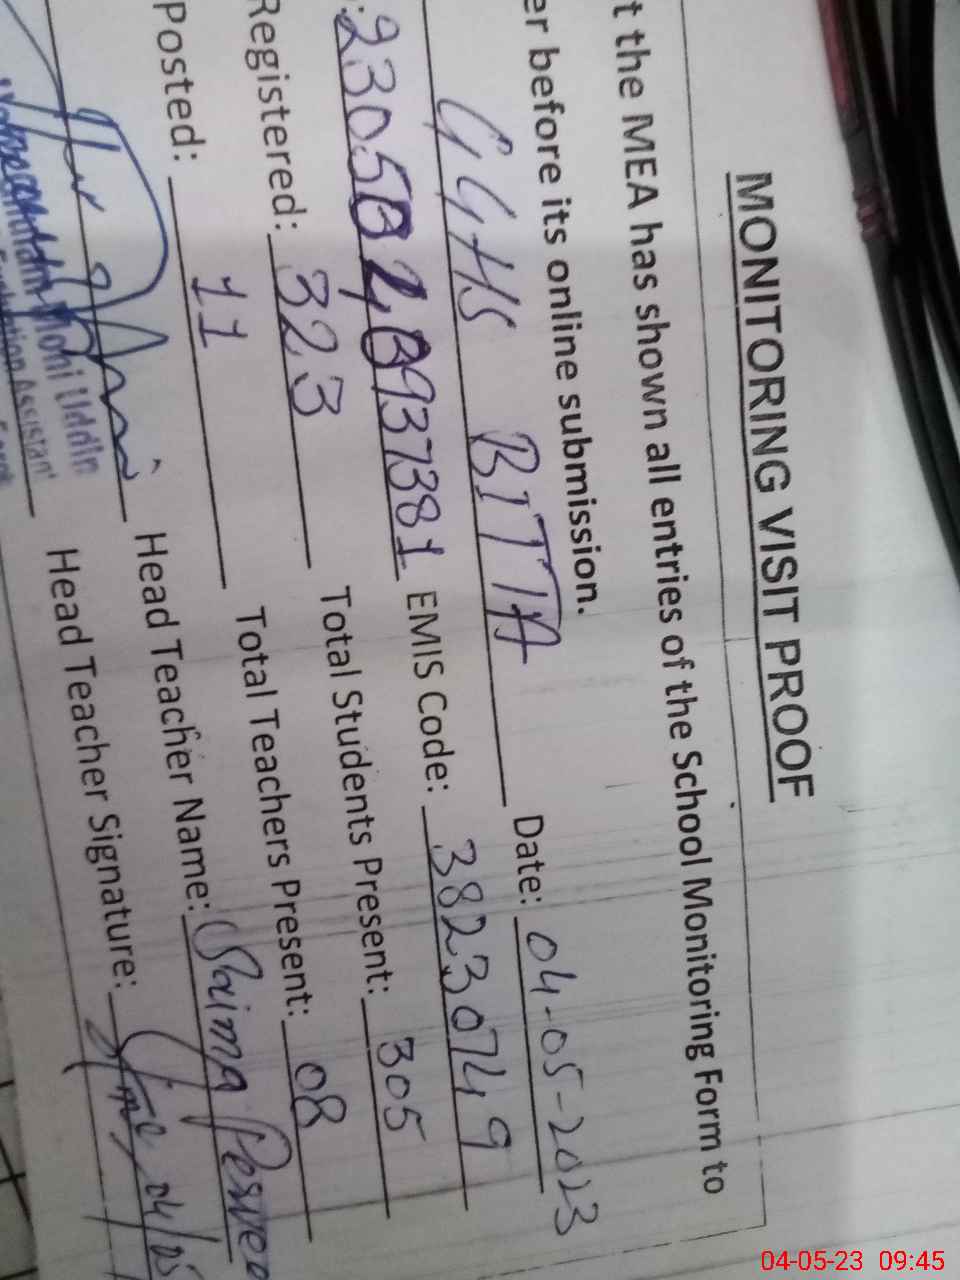 MONITORING VISIT PROOF
t the MEA has shown all entries of the School Monitoring Form to
er before its online submission.
GGHS BITTA Date: 04-05-2023
EMIS Code: 38230749
Registered: 323 Total Students Present: 305
Posted: 11 Total Teachers Present: 08
Head Teacher Name: Saima Pervee
Head Teacher Signature: 04/05
04-05-23 09:45